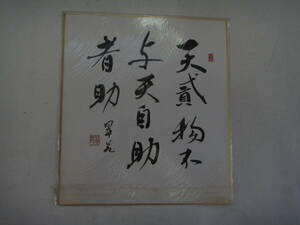 天貳物不
与天自助
者助